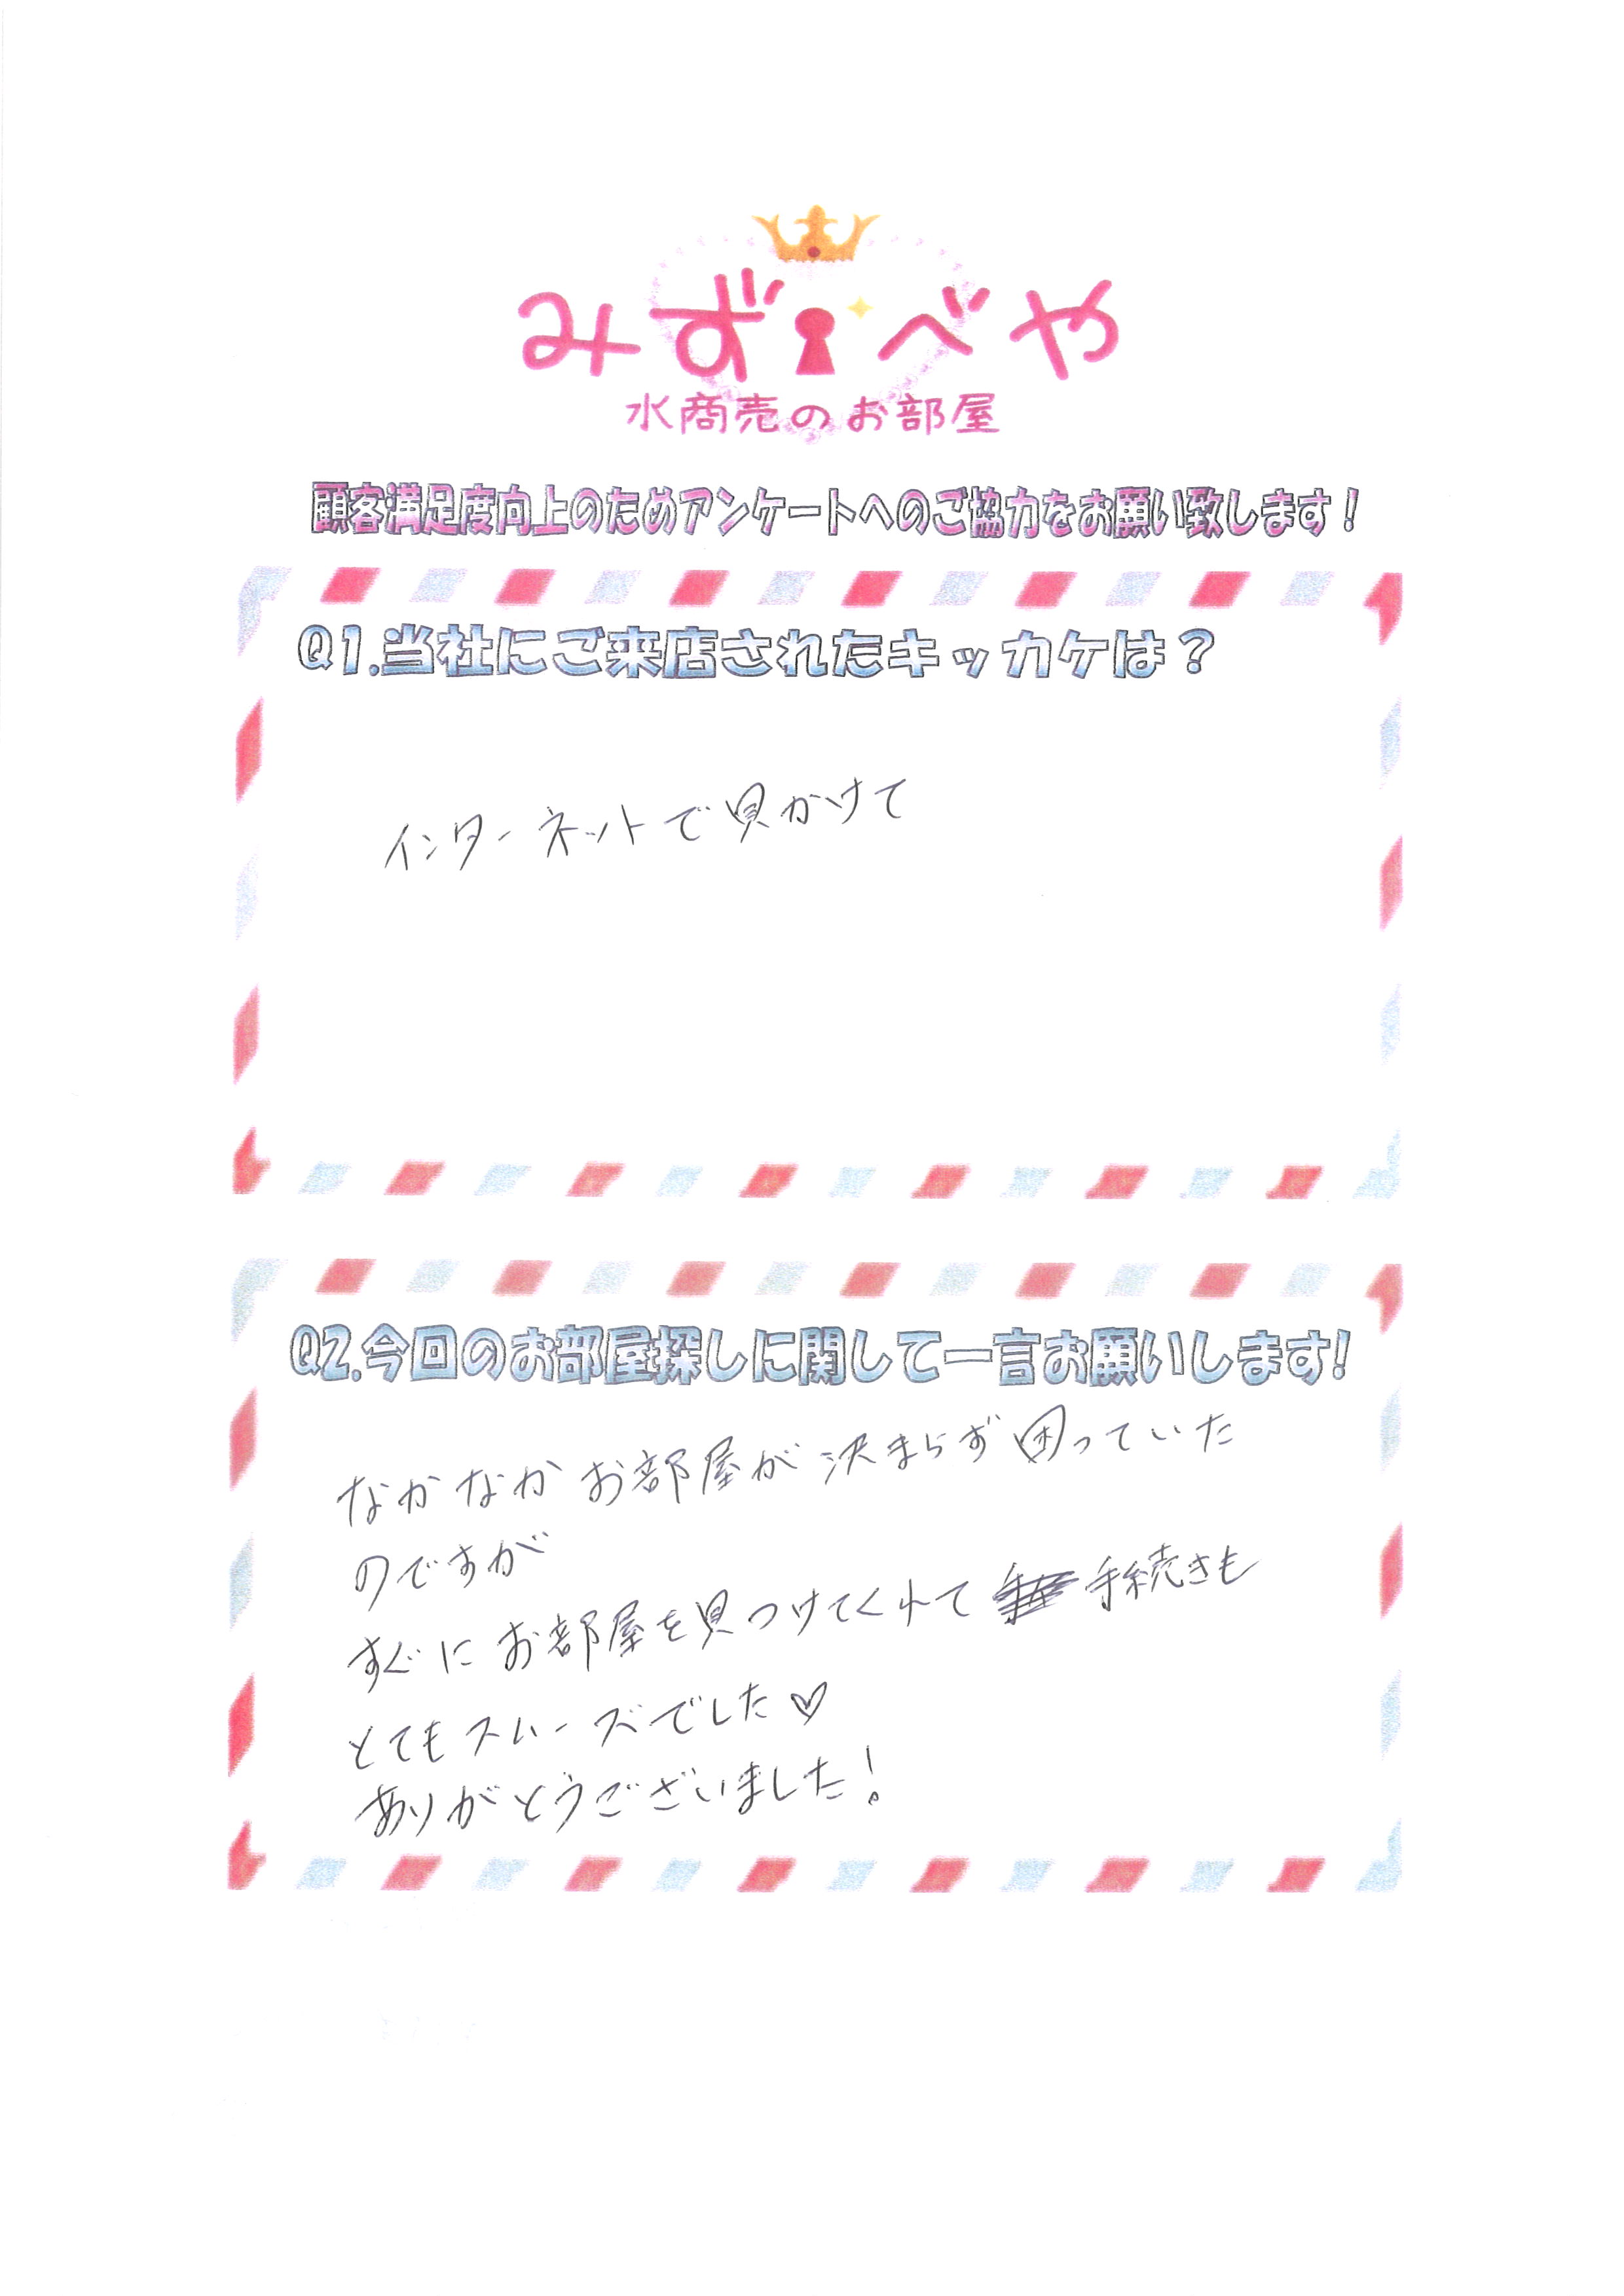 みずべや
水商売のお部屋
顧客満足度向上のためアンケートへのご協力をお願い致します！
Q1.当社にご来店されたキッカケは？
インターネットで見かけて
Q2.今回のお部屋探しに関して一言お願いします!
なかなかお部屋が決まらず困っていた
のですが
すぐにお部屋を見つけてくれて 手続きも
とてもスムーズでした♡
ありがとうございました!